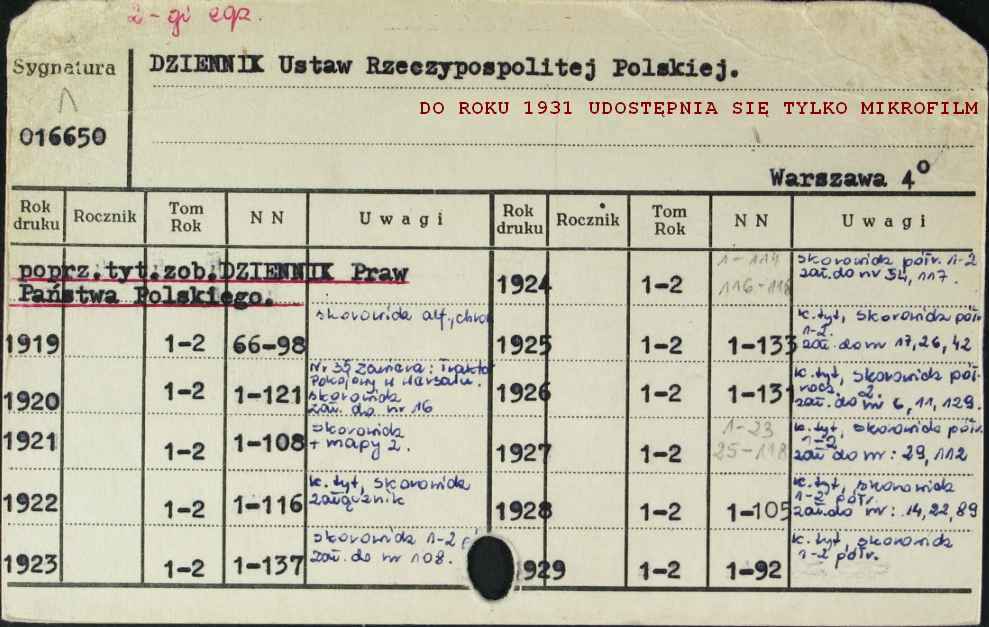 2-gi egz.
Sygnatura
DZIENNIK Ustaw Rzeczypospolitej Polskiej.
DO ROKU 1931 UDOSTĘPNIA SIĘ TYLKO MIKROFILM
016650
Warszawa 4º
Rok druku Rocznik Tom Rok N N Uwagi Rok druku Rocznik Tom Rok N N Uwagi
poprz.tyt.zob.DZIENNIK Praw
Państwa Polskiego.
skorowidz alf., chron
1919 1-2 66-98
Nr 35 zawiera: Traktat
Pokojowy w Wersalu.
skorowidz
zał. do nr 16
1920 1-2 1-121
skorowidz
+ mapy 2.
1921 1-2 1-108
k. tyt, skorowidz
załącznik
1922 1-2 1-116
skorowidz 1-2
zał. do nr 108.
1923 1-2 1-137
1-114
116-118
skorowidz półr. 1-2
zał. do nr 54, 117.
1924 1-2
k. tyt, skorowidz półr
1-2.
zał. do nr 17, 26, 42
1925 1-2 1-133
k. tyt, skorowidz pół-
rocz. 2.
zał. do nr 6, 11, 129.
1926 1-2 1-131
1-23
25-118
k. tyt, skorowidz półr.
1-2
zał do nr: 29, 112
1927 1-2
k. tyt, skorowidz
1-2 półr.
zał. do nr: 14, 22, 89
1928 1-2 1-105
k. tyt, skorowidz
1-2 półr.
1929 1-2 1-92